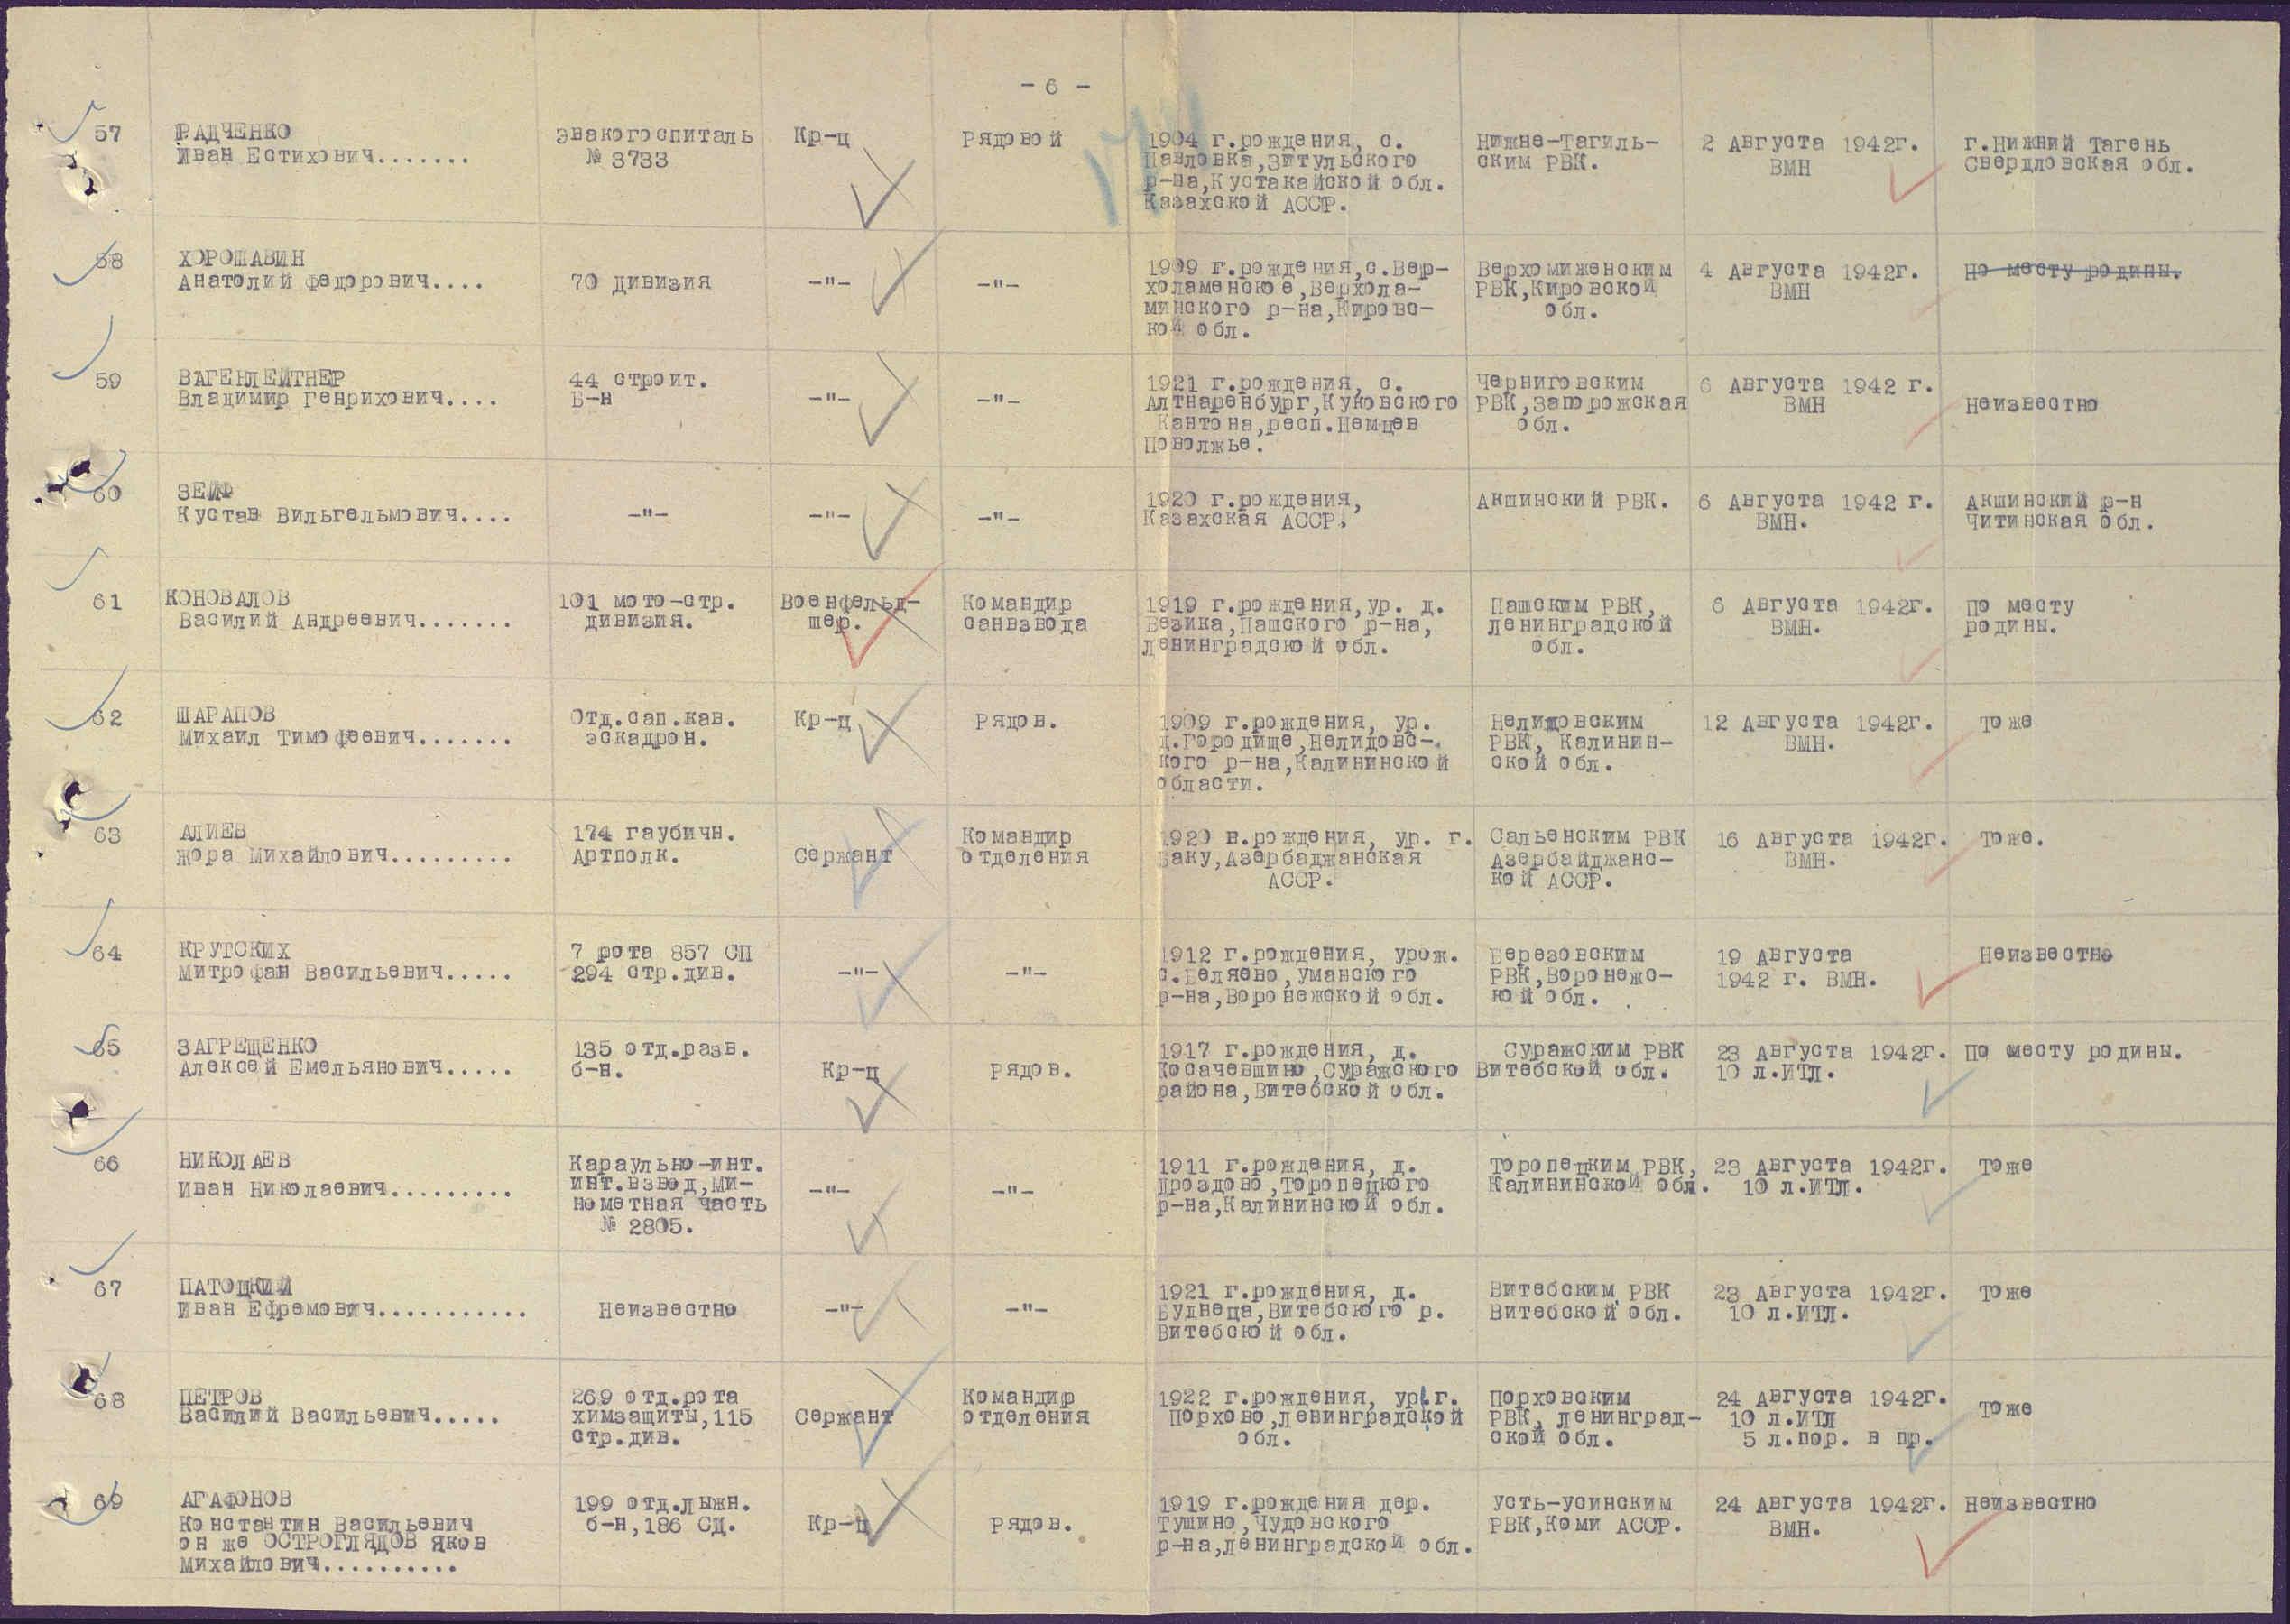 - 6 -
57
РАДЧЕНКО
Иван Естихович.......
эвакогоспиталь
№ 3733
Кр-ц
рядовой
1904 г.рождения, с.
Павловка,Зитульского
р-на,Кустакайской обл.
Казахской АССР.
Нижне-Тагиль-
ским РВК.
2 Августа 1942г.
ВМН
г.Нижний Тагень
Свердловская обл.
58
ХОРОШАВИН
Анатолий Федорович....
70 дивизия
-"-
-"-
1909 г.рождения,с.Вер-
холаменское,Верхола-
минского р-на,Кировс-
кой обл.
Верхомиженским
РВК,Кировской
обл.
4 Августа 1942г.
ВМН
По месту родины.
59
ВАГЕНЛЕЙТНЕР
Владимир Генрихович....
44 строит.
Б-н
-"-
-"-
1921 г.рождения, с.
Алтнаренбург,Куковского
Кантона,респ.Немцев
Поволжье.
Черниговским
РВК,Запорожская
обл.
6 Августа 1942 г.
ВМН
Неизвестно
60
ЗЕЙФ
Кустав Вильгельмович....
-"-
-"-
-"-
1920 г.рождения,
Казахская АССР.
Акшинский РВК.
6 Августа 1942 г.
ВМН.
Акшинский р-н
Читинская обл.
61
КОНОВАЛОВ
Василий Андреевич.......
101 мото-стр.
дивизия.
Военфельд-
шер.
Командир
санвзвода
1919 г.рождения,ур. д.
Везика,Пашского р-на,
Ленинградской обл.
Пашским РВК,
Ленинградской
обл.
6 Августа 1942г.
ВМН.
По месту
родины.
62
ШАРАПОВ
Михаил Тимофеевич.......
Отд.сап.кав.
эскадрон.
Кр-ц
рядов.
1909 г.рождения, ур.
д.Городище,Нелидовс-
кого р-на,Калининской
области.
Нелидовским
РВК, Калинин-
ской обл.
12 Августа 1942г.
ВМН.
Тоже
63
АЛИЕВ
Жора Михайлович.........
174 гаубичн.
Артполк.
Сержант
Командир
отделения
1920 в.рождения, ур. г.
Баку,Азербаджанская
АССР.
Сальенским РВК
Азербайджанс-
кой АССР.
16 Августа 1942г.
ВМН.
Тоже.
64
КРУТСКИХ
Митрофан Васильевич.....
7 рота 857 СП
294 стр.див.
-"-
-"-
1912 г.рождения, урож.
с.Беляево,уманского
р-на,Воронежской обл.
Березовским
РВК,Воронежс-
кой обл.
19 Августа
1942 г. ВМН.
Неизвестно
65
ЗАГРЕЩЕНКО
Алексей Емельянович.....
135 отд.разв.
б-н.
Кр-ц
рядов.
1917 г.рождения, д.
Косачевшино,Суражского
района,Витебской обл.
Суражским РВК
Витебской обл.
23 Августа 1942г.
10 л.ИТЛ.
По месту родины.
66
НИКОЛАЕВ
Иван Николаевич.........
Караульно-инт.
инт.взвод,ми-
нометная часть
№ 2805.
-"-
-"-
1911 г.рождения, д.
Дроздово,Торопецкого
р-на,Калининской обл.
Торопецким РВК,
Калининской обл.
23 Августа 1942г.
10 л.ИТЛ.
Тоже
67
ПАТОЦКИЙ
Иван Ефремович...........
Неизвестно
-"-
-"-
1921 г.рождения, д.
Буднеца,Витебского р.
Витебской обл.
Витебским РВК
Витебской обл.
23 Августа 1942г.
10 л.ИТЛ.
Тоже
68
ПЕТРОВ
Василий Васильевич.....
269 отд.рота
химзащиты,115
стр.див.
Сержант
Командир
отделения
1922 г.рождения, ур.г.
Порхово,Ленинградской
обл.
Порховским
РВК, Ленинград-
ской обл.
24 Августа 1942г.
10 л.ИТЛ
5 л.пор. в пр.
Тоже
69
АГАФОНОВ
Константин Васильевич
он же ОСТРОГЛЯДОВ Яков
Михайлович..........
199 отд.лыжн.
б-н,186 СД.
Кр-ц
рядов.
1919 г.рождения дер.
Тушино,Чудовского
р-на,Ленинградской обл.
Усть-усинским
РВК,Коми АССР.
24 Августа 1942г.
ВМН.
Неизвестно